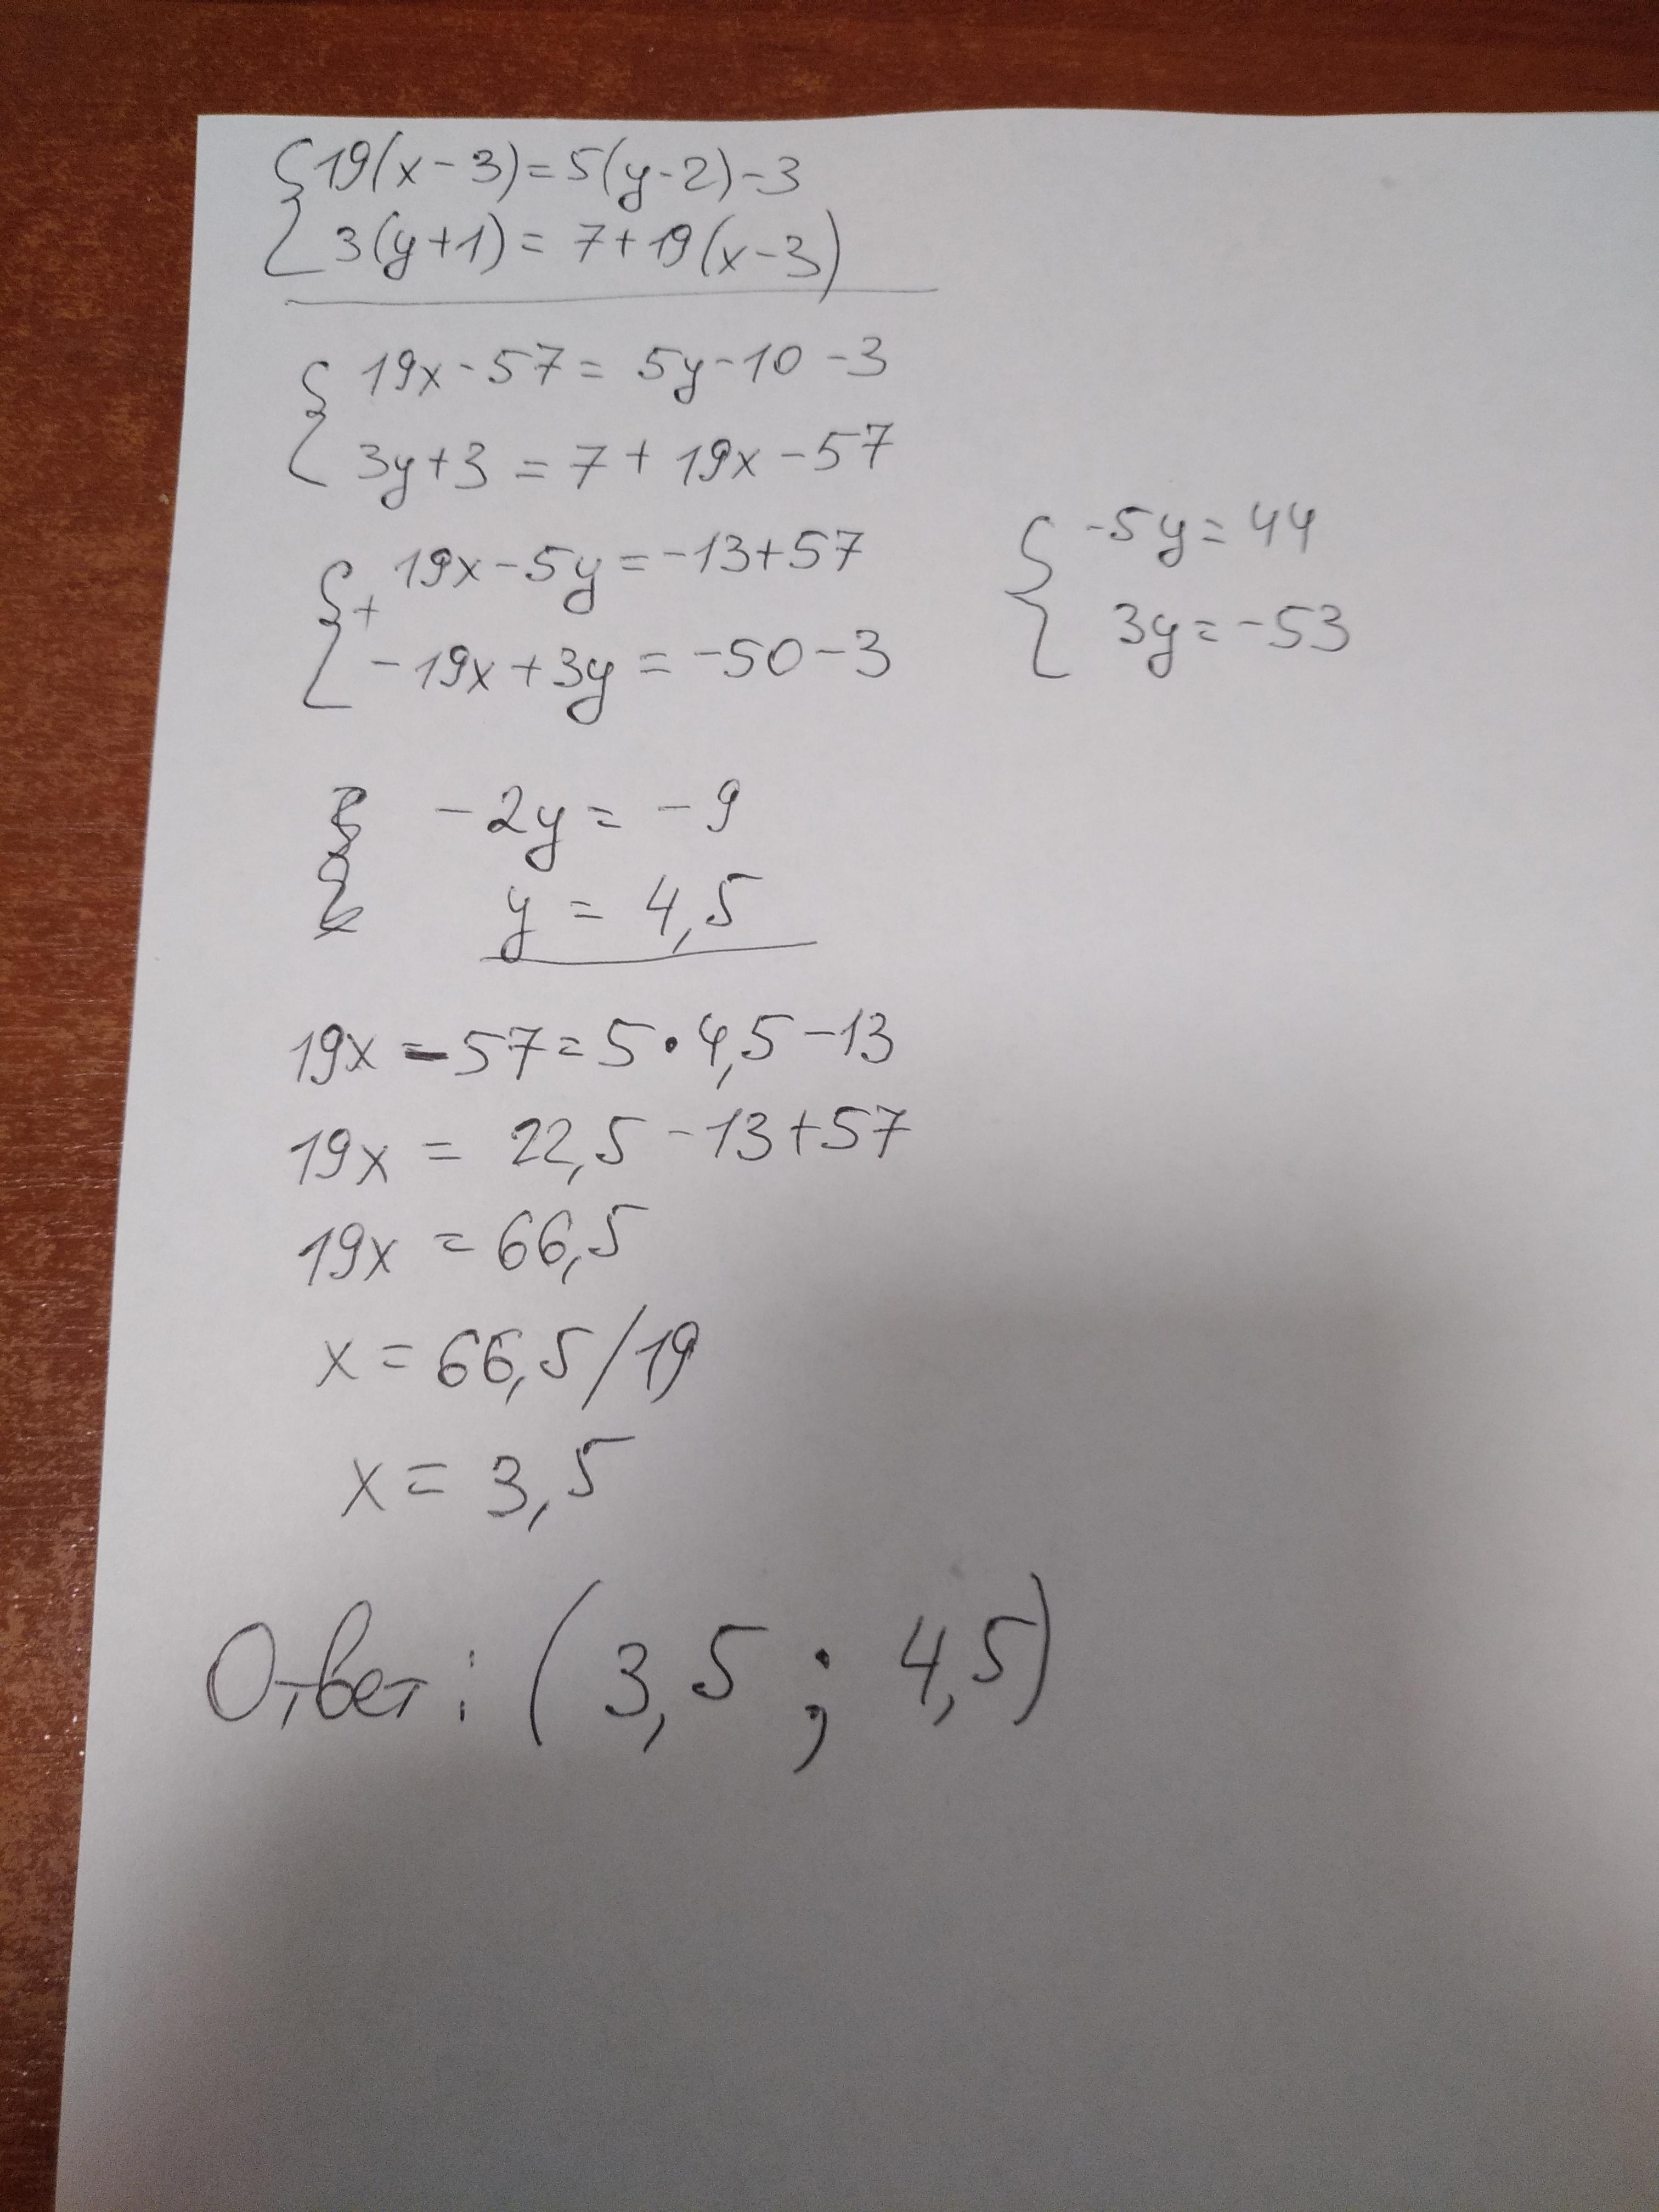 19(x-3)=5(y-2)-3
3(y+1)=7+19(x-3)
19x-57=5y-10-3
3y+3=7+19x-57
19x-5y=-13+57
+
-19x+3y=-50-3
-5y=44
3y=-53
-2y=-9
y=4,5
19x-57=5·4,5-13
19x=22,5-13+57
19x=66,5
x=66,5/19
x=3,5
Ответ: (3,5; 4,5)